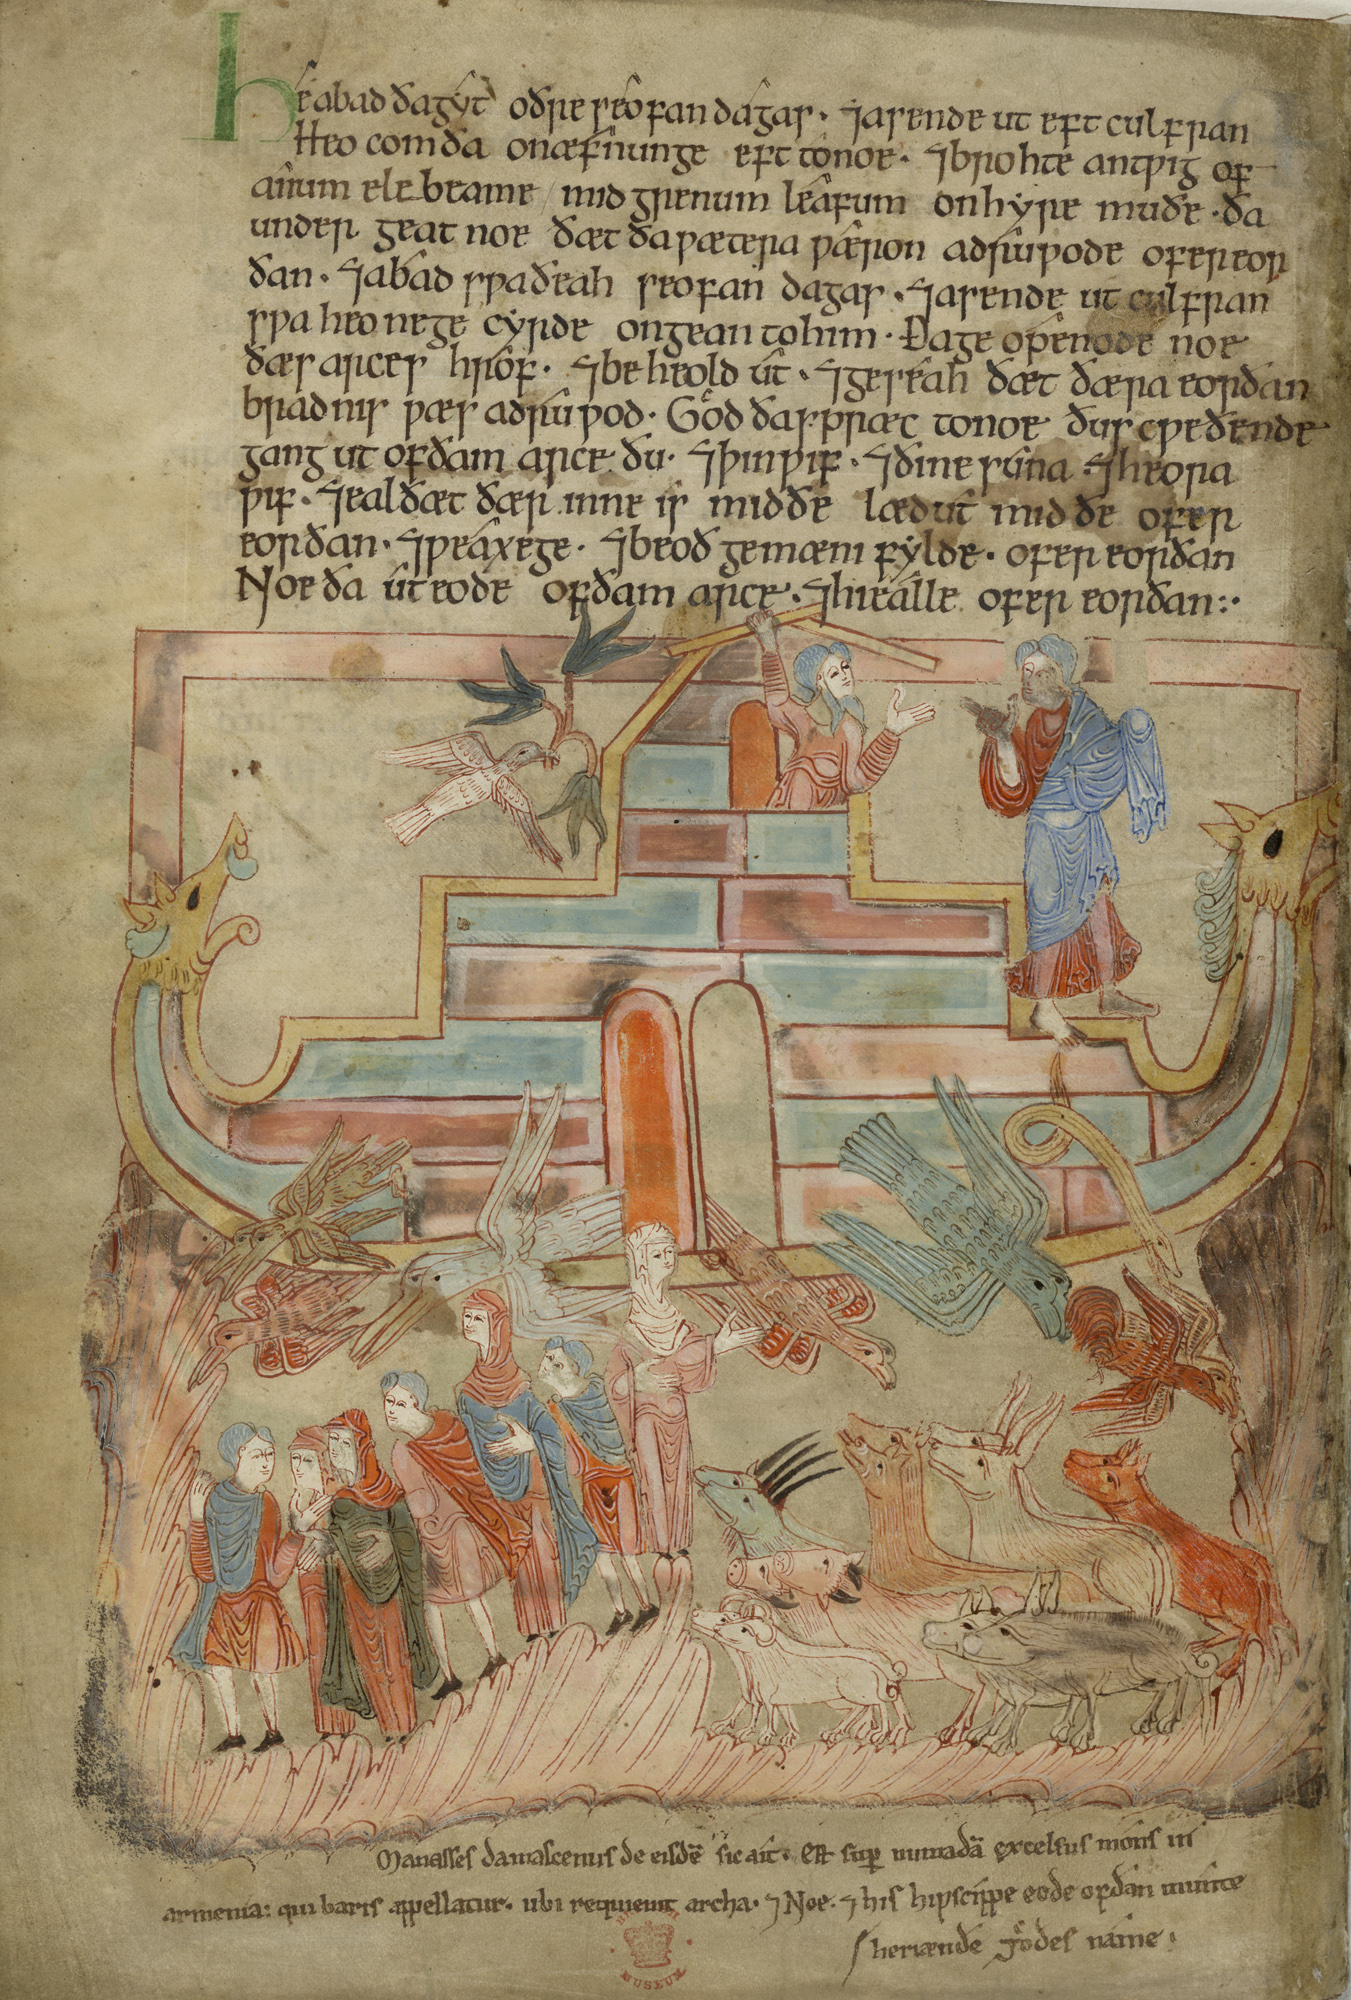 He abad ða gyt oðre seofan dagas · ⁊ asende ut eft culfran
Heo com ða on æfnunge eft to noe · ⁊ brohte an twig of
anum ele beame mid grenum leafum on hyre muðe · ða
under geat noe ðæt ða wætera wæron adruwode ofer eor
ðan · ⁊ abad swa ðeah seofan dagas · ⁊ asende ut culfran
swa heo ne ge cyrde ongean to him · Ða ge openode noe
ðæs arces hrof · ⁊ be heold ut · ⁊ geseah ðæt ðæra eorðan
bradnis wæs adruwod · God ða spræc to noe ðus cweðende
gang ut of ðam arce ðu · ⁊ þin wif · ⁊ ðine suna ⁊ heora
wif · ⁊ eal ðæt ðær inne is mid ðe læd ut mid ðe ofer
eorðan · ⁊ weaxe ge · ⁊ beoð gemænifylde · ofer eorðan
Noe ða ut eode of ðam arce · ⁊ hi ealle ofer eorðan :·
Manasses damascenus de eisdē sic ait · Est suꝑ excelsus mons in
armenia: qui baris appellatur · ubi requieuit archa · ⁊ Noe · ⁊ his hipscippe eode ofðan
heriænde godes name ·
BRITISH MUSEUM